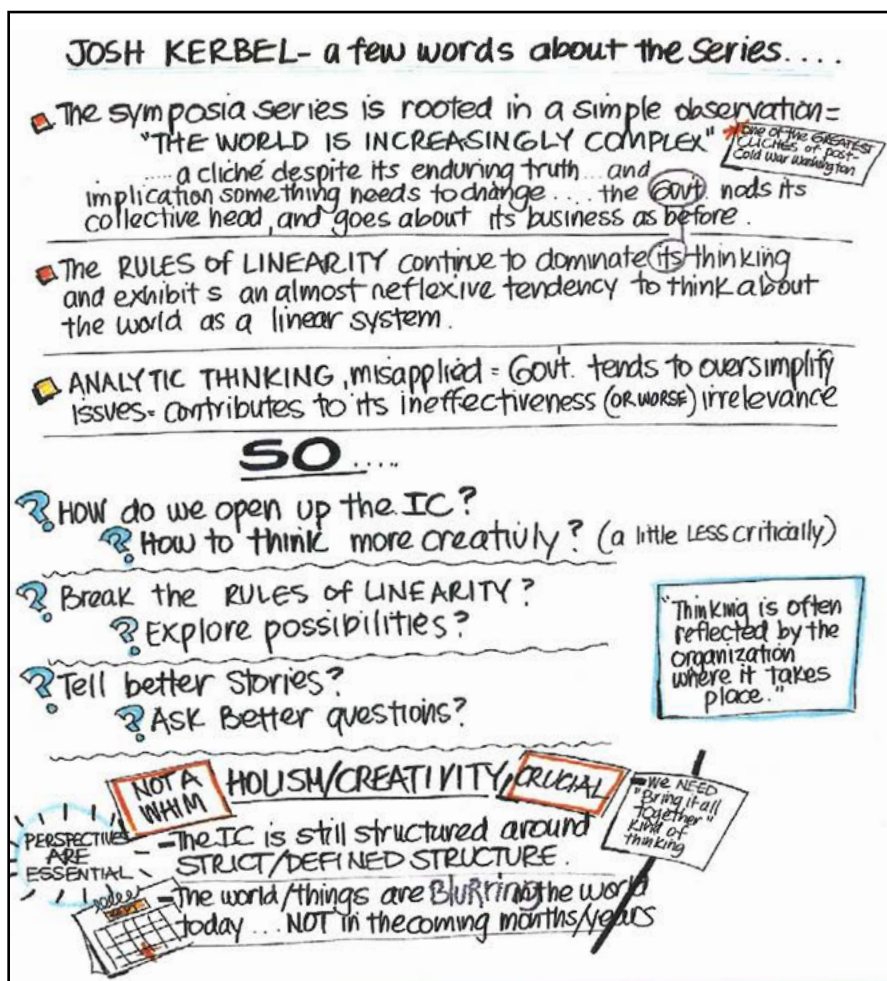 JOSH KERBEL- a few words about the Series....
The symposia series is rooted in a simple observation=
"THE WORLD IS INCREASINGLY COMPLEX"
*one of the GREATEST
CLICHÉS of post-
Cold War Washington
....a cliché despite its enduring truth...and
implication something needs to change.... the Govt. nods its
collective head, and goes about its business as before.
The RULES of LINEARITY continue to dominate its thinking
and exhibits an almost reflexive tendency to think about
the world as a linear system.
ANALYTIC THINKING, misapplied = Govt. tends to oversimplify
issues= contributes to its ineffectiveness (OR WORSE) irrelevance
SO....
? How do we open up the IC?
? How to think more creativly? (a little LESS critically)
? Break the RULES of LINEARITY?
? Explore possibilities?
? Tell better stories?
? Ask Better questions?
"Thinking is often
reflected by the
organization
where it takes
place."
NOT A
WHIM
HOLISM/CREATIVITY, CRUCIAL
-We NEED
"Bring it all
Together"
kind of
thinking
PERSPECTIVES
ARE
ESSENTIAL
-The IC is still structured around
STRICT/DEFINED STRUCTURE.
-The world/things are BluRring in the world
today... NOT in the coming months/years